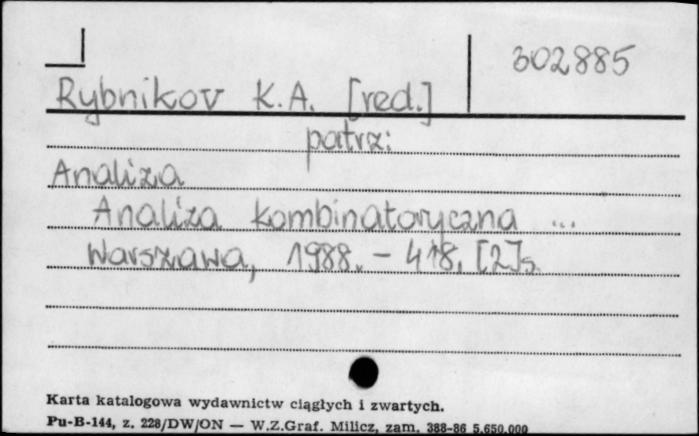 302885
Rybnikov K.A. [red.]
patrz:
Analiza
Analiza kombinatoryczna ...
Warszawa, 1988. - 418, [2]s.
Karta katalogowa wydawnictw ciągłych i zwartych.
Pu-B-144, z. 228/DW/ON — W.Z.Graf. Milicz, zam. 388-86 5.650.000